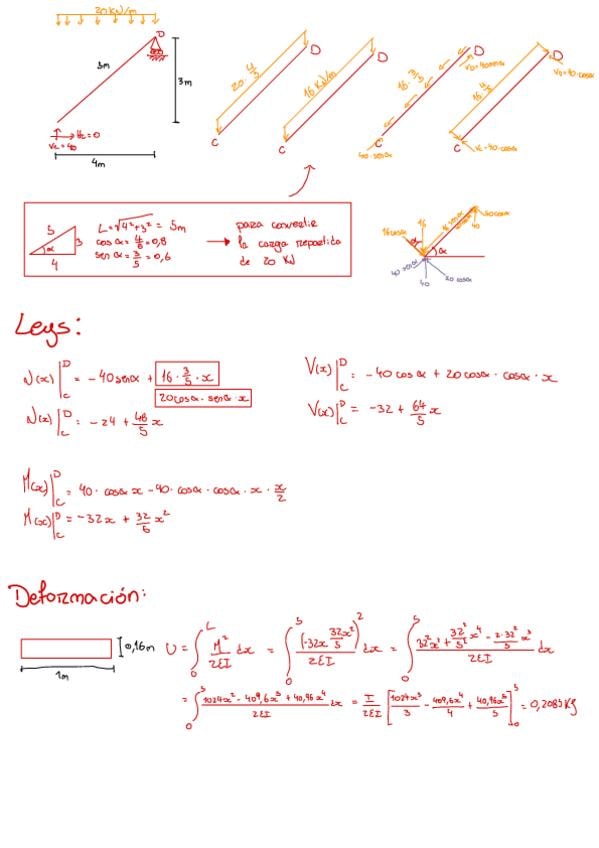 20 KN/m
D
5m
3m
Hc=0
Vc=40
4m
20·4/5
D
C
16 KN/m
D
C
16·3/5
D
C
40·senα
16·4/5
D
C
V_D=40·cosα
Vc=40·cosα
5
3
α
4
L=√4²+3² = 5m
cos α = 4/5 = 0,8
sen α = 3/5 = 0,6
→ para convertir
la carga repartida
de 20 KN
16cosα
16
α
40
40
Leys:
N(x)|_C^D = -40 senα + 16·3/5·x
20cosα·senα·x
N(x)|_C^D = -24 + 48/5 x
V(x)|_C^D = -40 cosα + 20cosα·cosα·x
V(x)|_C^D = -32 + 64/5 x
M(x)|_C^D = 40·cosα x - 40·cosα·cosα·x·x/2
M(x)|_C^D = -32x + 32/5 x²
Deformación:
0,16m
1m
U = ∫_0^L M²/2EI dx = ∫_0^5 (-32x 32x²/5)²/2EI dx = ∫_0^5 (32²x² + 32²/5² x⁴ - 2·32²/5 x³)/2EI dx
= ∫_0^5 (1024x² - 409,6x³ + 40,96x⁴)/2EI dx = I/2EI [1024x³/3 - 409,6x⁴/4 + 40,96x⁵/5]_0^5 = 0,2083 KJ